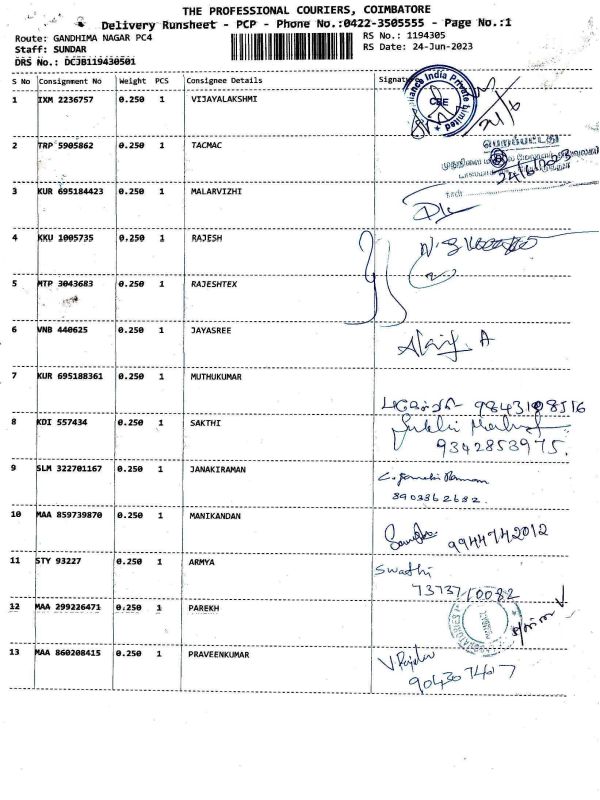 THE PROFESSIONAL COURIERS, COIMBATORE
Delivery Runsheet - PCP - Phone No.:0422-3505555 - Page No.:1
Route: GANDHIMA NAGAR PC4
Staff: SUNDAR
DRS No.: DCJB119430501
RS No.: 1194305
RS Date: 24-Jun-2023
S No Consignment No Weight PCS Consignee Details Signature
1 IXM 2236757 0.250 1 VIJAYALAKSHMI
India Private Limited
CBE
2 TRP 5905862 0.250 1 TACMAC
பெறப்பட்டது
24/6/2023
3 KUR 695184423 0.250 1 MALARVIZHI
4 KKU 1005735 0.250 1 RAJESH
5 MTP 3043683 0.250 1 RAJESHTEX
6 VNB 440625 0.250 1 JAYASREE
7 KUR 695188361 0.250 1 MUTHUKUMAR
9843108516
8 KDI 557434 0.250 1 SAKTHI
9342853975.
9 SLM 322701167 0.250 1 JANAKIRAMAN
8903362682.
10 MAA 859739870 0.250 1 MANIKANDAN
9944742012
11 STY 93227 0.250 1 ARMYA
Swathi
7373710082
12 MAA 299226471 0.250 1 PAREKH
13 MAA 860208415 0.250 1 PRAVEENKUMAR
9043074607